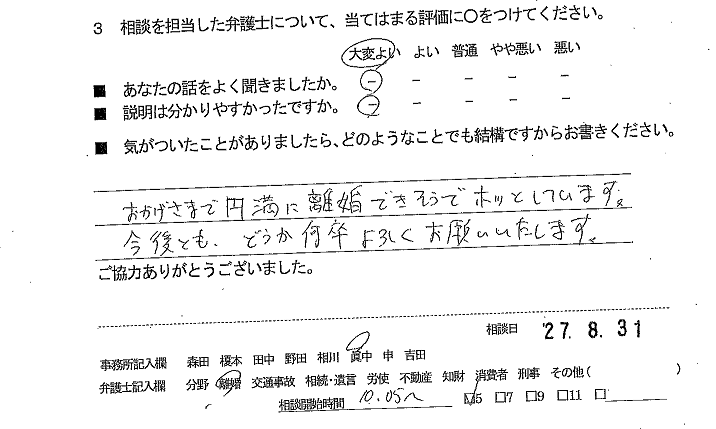 3 相談を担当した弁護士について、当てはまる評価に○をつけてください。
大変よい よい 普通 やや悪い 悪い
■ あなたの話をよく聞きましたか。 － － － － －
■ 説明は分かりやすかったですか。 － － － － －
■ 気がついたことがありましたら、どのようなことでも結構ですからお書きください。
おかげさまで円満に離婚できそうでホッとしています。
今後とも、どうか何卒よろしくお願いいたします。
ご協力ありがとうございました。
相談日 '27.8.31
事務所記入欄 森田 榎本 田中 野田 相川 眞中 申 吉田
弁護士記入欄 分野 離婚 交通事故 相続・遺言 労使 不動産 知財 消費者 刑事 その他( )
相談開始時間 10:05～ □5 □7 □9 □11 □